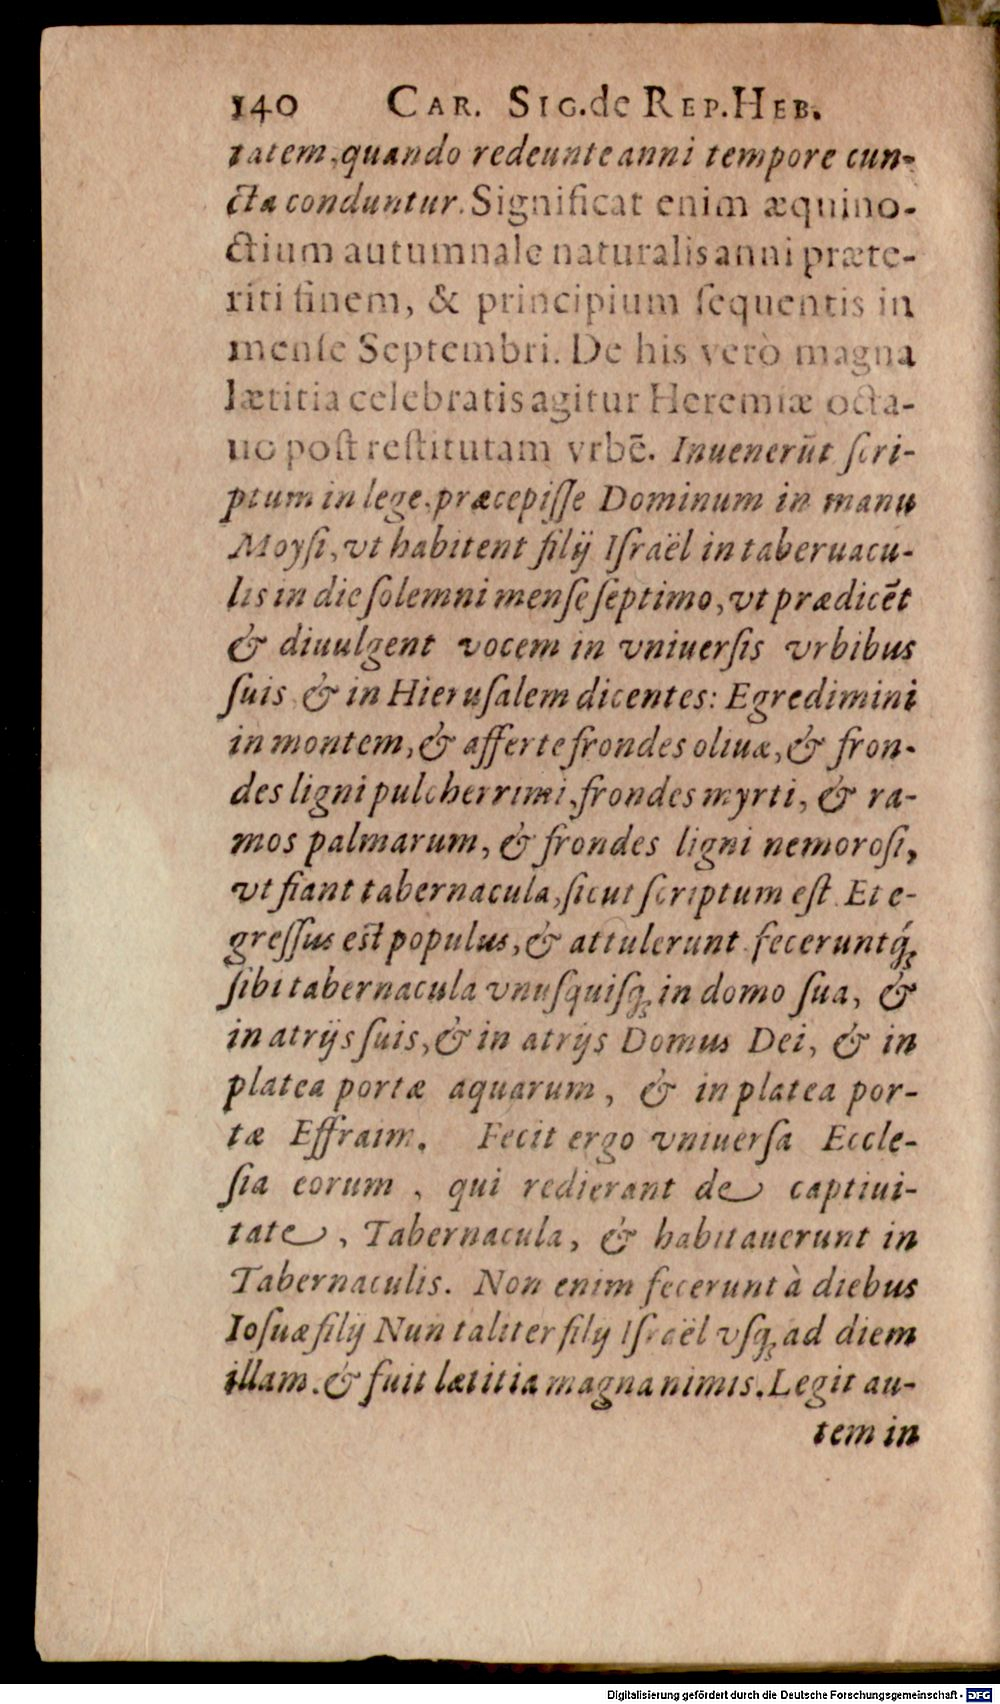 140 CAR. SIG. de REP. HEB.
tatem, quando redeunte anni tempore cun-
cta conduntur. Significat enim æquino-
ctium autumnale naturalis anni præte-
riti finem, & principium ſequentis in
menſe Septembri. De his verò magna
lætitia celebratis agitur Heremiæ octa-
uo poſt reſtitutam vrbē. Inuenerūt ſcri-
ptum in lege, præcepiſſe Dominum in manu
Moyſi, vt habitent filij Iſraël in taberuacu-
lis in die ſolemni menſe ſeptimo, vt prædicēt
& diuulgent vocem in vniuerſis vrbibus
ſuis & in Hieruſalem dicentes: Egredimini
in montem, & afferte frondes oliuæ, & fron-
des ligni pulcherrimi, frondes myrti, & ra-
mos palmarum, & frondes ligni nemoroſi,
vt fiant tabernacula, ſicut ſcriptum eſt. Et e-
greſſus eſt populus, & attulerunt feceruntq́;
ſibi tabernacula vnuſquiſq; in domo ſua, &
in atrijs ſuis, & in atrijs Domus Dei, & in
platea portæ aquarum, & in platea por-
tæ Effraim. Fecit ergo vniuerſa Eccle-
ſia eorum, qui redierant de captiui-
tate, Tabernacula, & habitauerunt in
Tabernaculis. Non enim fecerunt à diebus
Ioſuæ filij Nun taliter filij Iſraël vſq; ad diem
illam. & fuit lætitia magna nimis. Legit au-
tem in
Digitalisierung gefördert durch die Deutsche Forschungsgemeinschaft - DFG